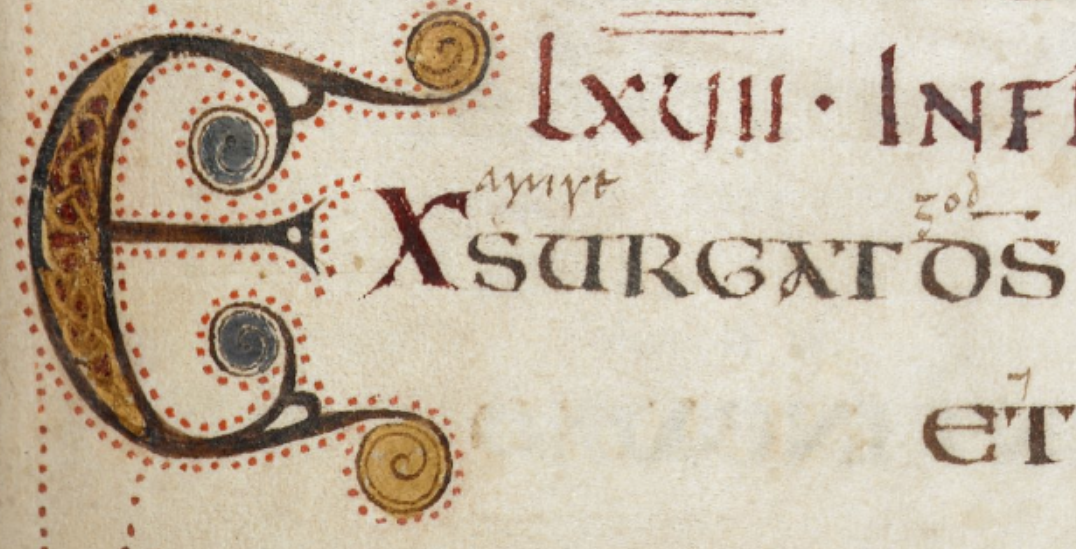 LXVII · IN FI
arise god
EXSURGAT D̅S̅
⁊
ET